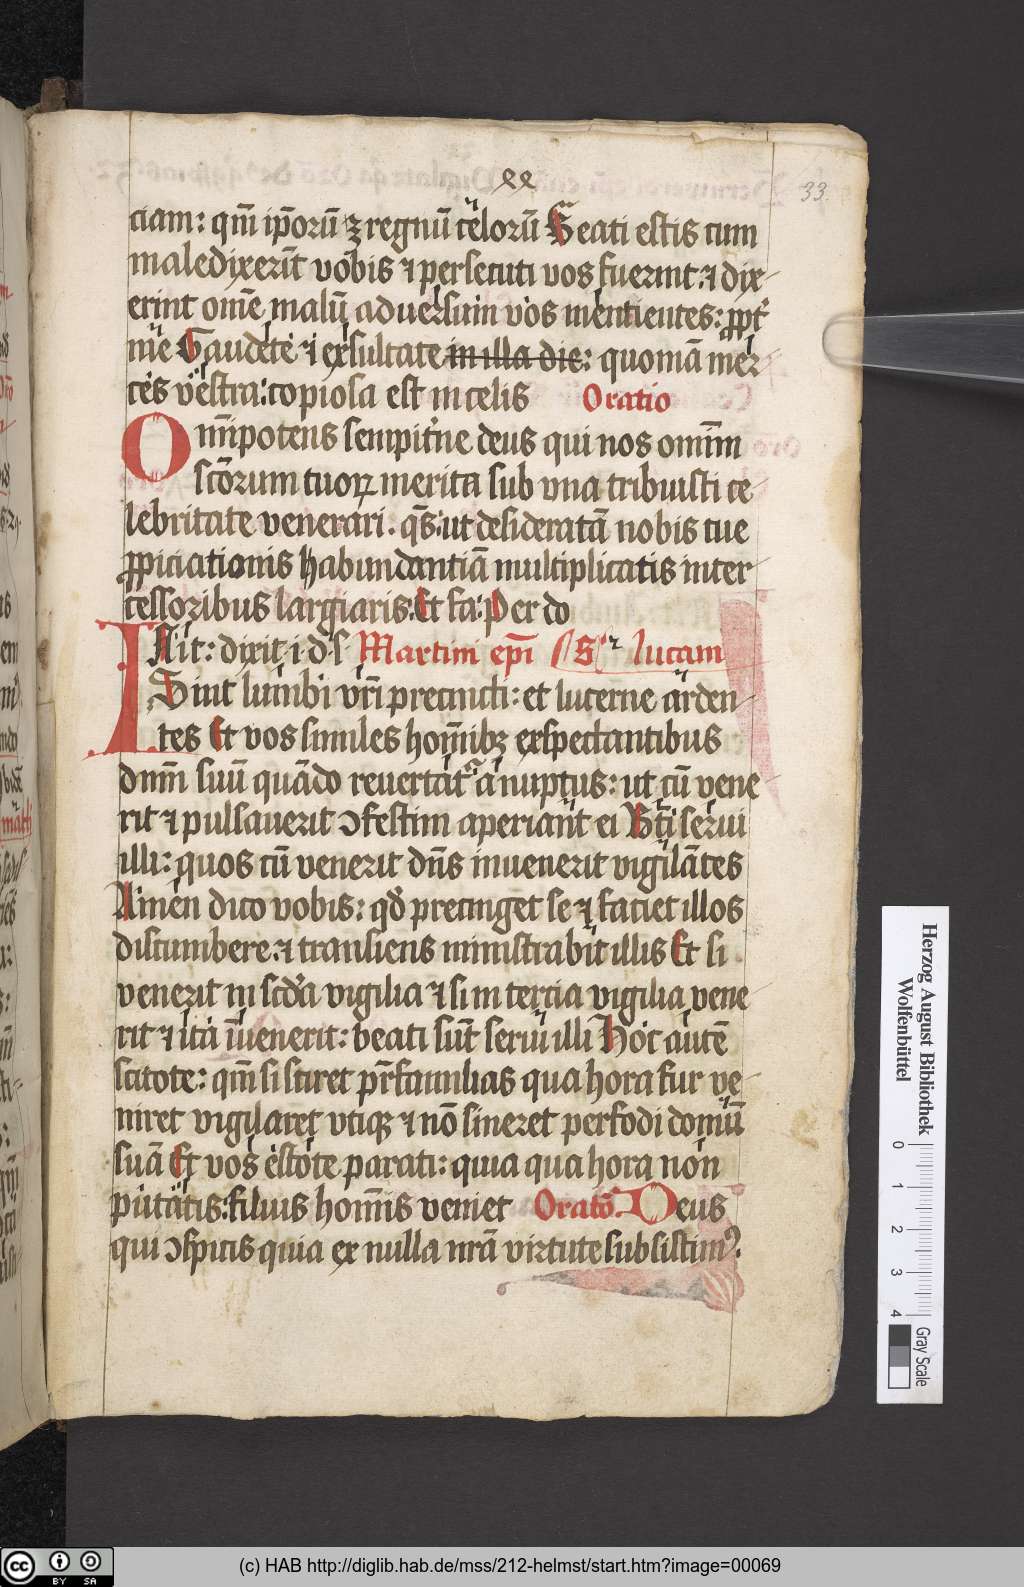 xx
33.
ciam: qm̄ ip̄orū ꝫ regnū celorū Beati estis cum
maledixerīt vobis ⁊ persecuti vos fuerint: ⁊ dix
erint om̄e malū aduersum vos mentientes: ꝓpt̾
me Gaudete ⁊ exsultate in illa die: quoniā mer
ces vestra: copiosa est in celis Oratio
Omīpotens sempit̾ne deus qui nos omīm
sc̄orum tuoꝝ merita sub vna tribuisti ce
lebritate venerari. qs̄: ut desideratā nobis tue
ꝓpiciationis habundantiā multiplicatis inter
cessoribus largiaris: Et fa: Per do
In īt: dixit i.d.s Martini ep̄i S lucam
Sint lumbi vr̄i precincti: et lucerne arden
tes Et vos similes hom̄ibꝫ exspectantibus
dnm̄ suū quādo reuertat᷑ a nuptijs: ut cū vene
rit ⁊ pulsauerit ↄfestim aperiant ei Bt̄i serui
illi: quos cū venerit dn̄s inuenerit vigilātes
Amen dico vobis: qd̓ precinget se ⁊ faciet illos
discumbere: ⁊ transiens ministrabit illis Et si
venerit in scd̓a vigilia ⁊ si in tercia vigilia vene
rit ⁊ ita īuenerit: beati sūt serui illi Hoc autē
scitote: qm̄ si sciret pr̄familias qua hora fur ve
niret vigilaret vtiqꝫ ⁊ nō sineret perfodi domū
suā Et vos estote parati: quia qua hora non
putatis: filius hom̄is veniet Oratō. Deus
qui ↄspicis quia ex nulla nr̄a virtute subsistimꝰ.
Herzog August Bibliothek
Wolfenbüttel
0 1 2 3 4
Gray Scale
cc BY SA
(c) HAB http://diglib.hab.de/mss/212-helmst/start.htm?image=00069